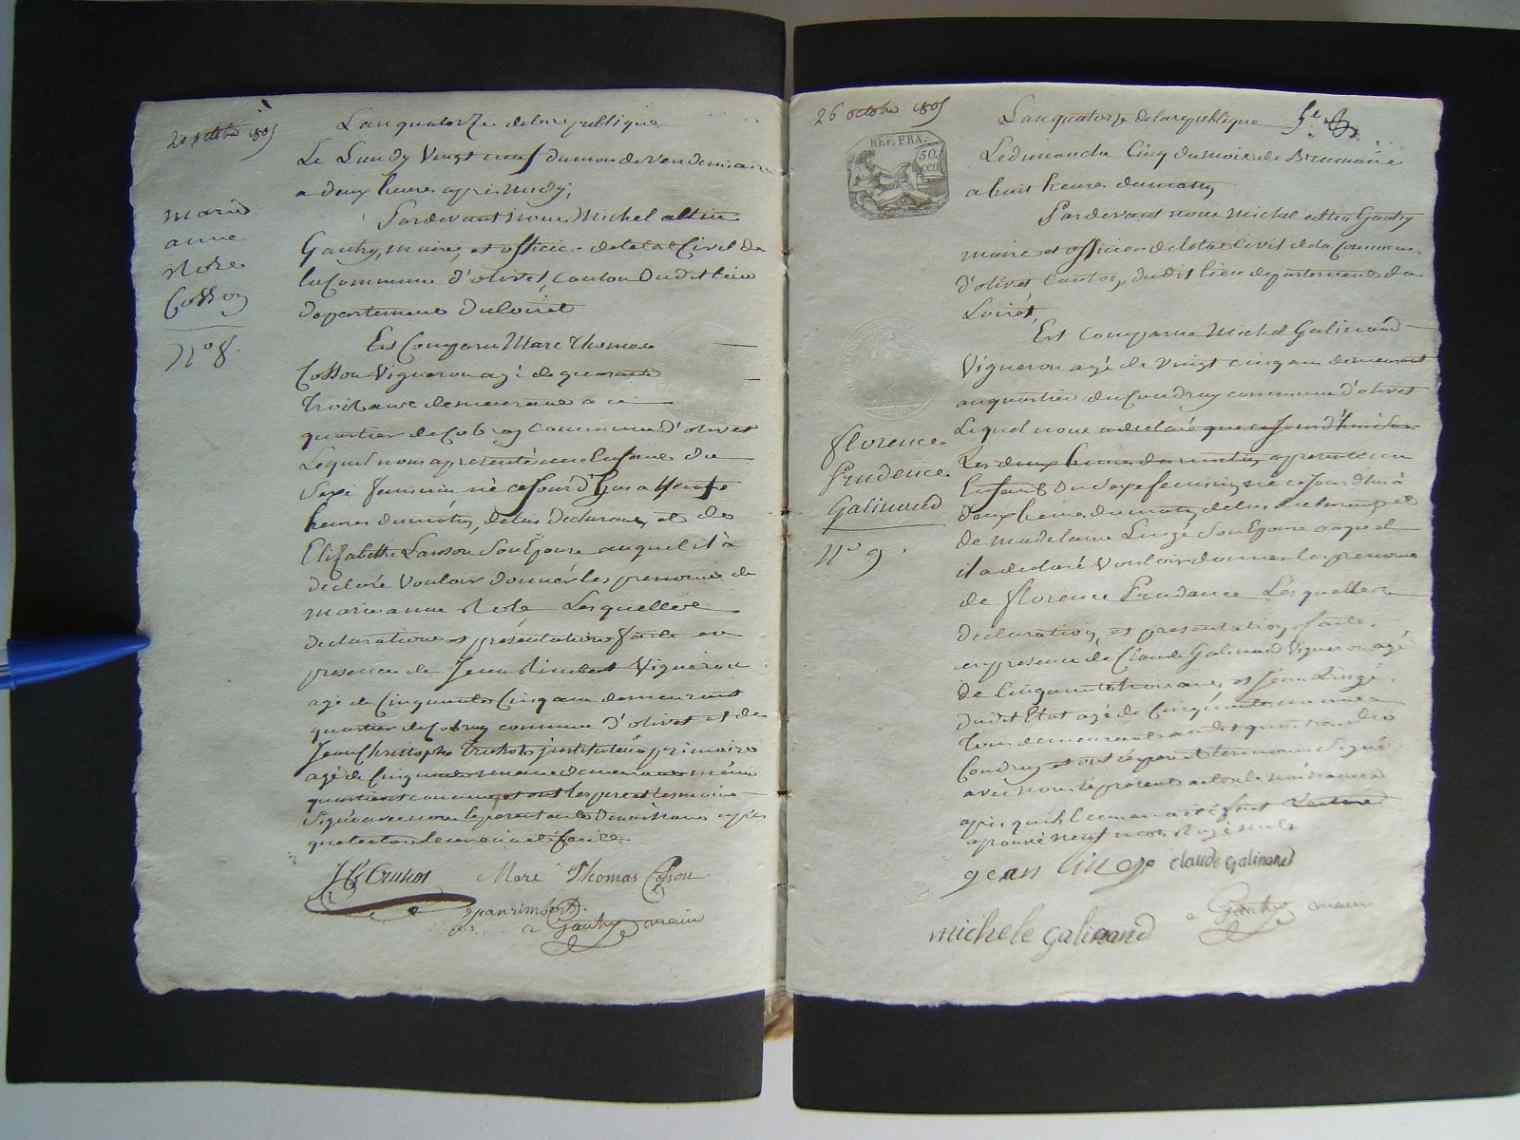 20 octobre 1805
marie
anne
Rose
Cosson
N.º 8.
L'an quatorze de la republique
Le Lundy Vingt neuf du mois de Vendemiaire
a deux heures apres midy;
Pardevant nous Michel altin
Gautry, maire, et officier de letat Civil de
la Commune d'olivet, canton dudit lieu
departement du loiret
Est Comparu Marc Thomas
Cosson Vigneron agé de quarante
trois ans demeurant a ce
quartier de Cobray Commune d'olivet
Lequel nous a presenté un Enfant du
Sexe feminin né ce jourd'huy a
heures du matin, de lui Declarant, et de
Elizabeth Lanson Son Epouse auquel il a
declaré Vouloir donner les prenoms de
marie anne Rose Lesquelles
declarations et présentations faite en
presence de Jean Rimbert Vigneron
agé de Cinquante Cinq ans demeurant
quartier de Cobray commune d'olivet et de
Jean Christophe Truhot instituteur primaire
agé de Cinquante demeurant même
quartier et commune et ont les pere et temoins
Signé avec nous le present acte De naissance après
que lecture leur en a eté faite.
JCh Truhot Marc Thomas Cosson
Jean rimbert.
Gautry maire
26 octobre 1805
REP. FRA.
50
L'an quatorze de la republique 5e
Le dimanche Cinq du mois de Brumaire
a huit heures du matin
Pardevant nous Michel altin Gautry
maire et officier de letat Civil de la Commune
d'olivet Canton dudit lieu departement du
Loiret,
Est Comparu Michel Galinand
Vigneron agé de Vingt cinq ans demeurant
au quartier du Coudray commune d'olivet
Lequel nous a declaré que ce jourd'hui
Les deux heures du matin, a presenté un
Enfant du Sexe feminin, né ce jourd'hui à
deux heures du matin, de lui declarant et
de madelaine Lingé Son Epouse auquel
il a declaré Vouloir donner les prenoms
de florence Prudence Lesquelles
declaration, et presentation, faite
en presence de Claude Galinand Vigneron agé
de Cinquante trois ans, et Jean Lingé
dudit Etat agé de Cinquante
tous demeurant audit quartier du
Coudray et ont le pere et temoins Signé
avec nous le présent acte de naissance
après qu'il leur en a eté fait Lecture
approuvé neuf mots Rayés nuls
florence
Prudence
Galinand
N.º 9.
jean linge claude galinand
Gautry maire
michele galinand